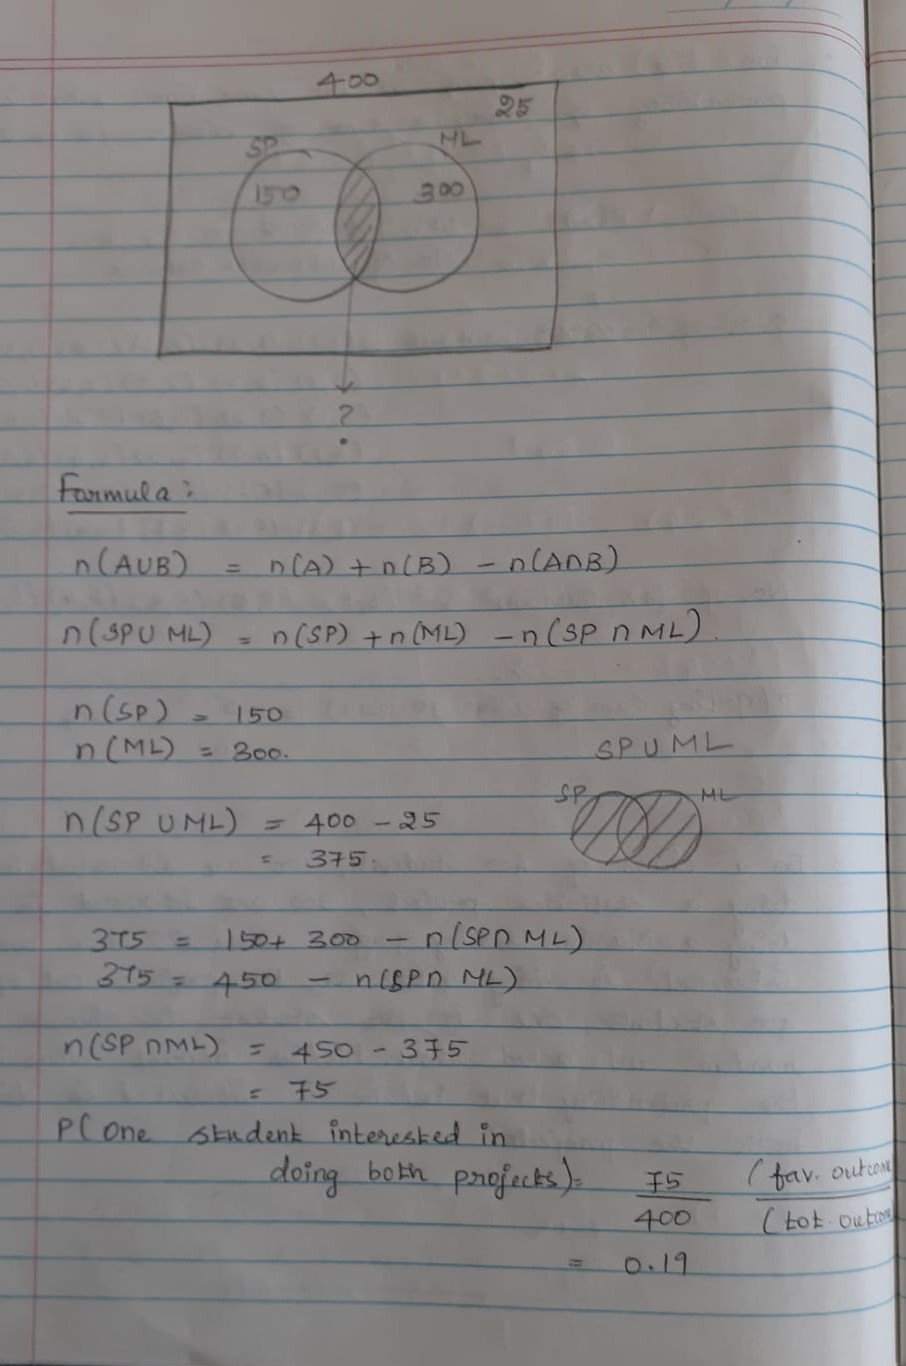 400
25
SP ML
150 300
?
Formula:
n(A∪B) = n(A) + n(B) - n(A∩B)
n(SP∪ML) = n(SP) + n(ML) - n(SP∩ML).
n(SP) = 150
n(ML) = 300.
SP∪ML
SP ML
n(SP∪ML) = 400 - 25
= 375.
375 = 150 + 300 - n(SP∩ML)
375 = 450 - n(SP∩ML)
n(SP∩ML) = 450 - 375
= 75
P(One student interested in
doing both projects) = 75 (fav. outcome
400 (tot. outcom
= 0.19